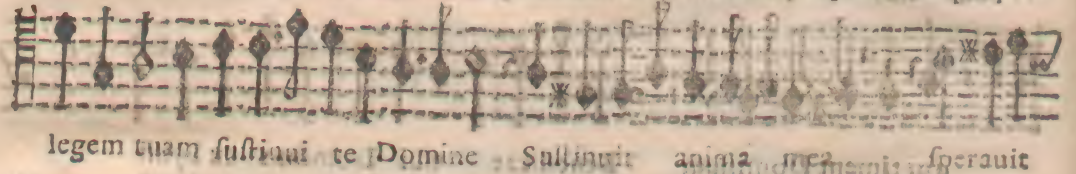 legem tuam ſuſtinui te Domine Suſtinuit anima mea ſperauit